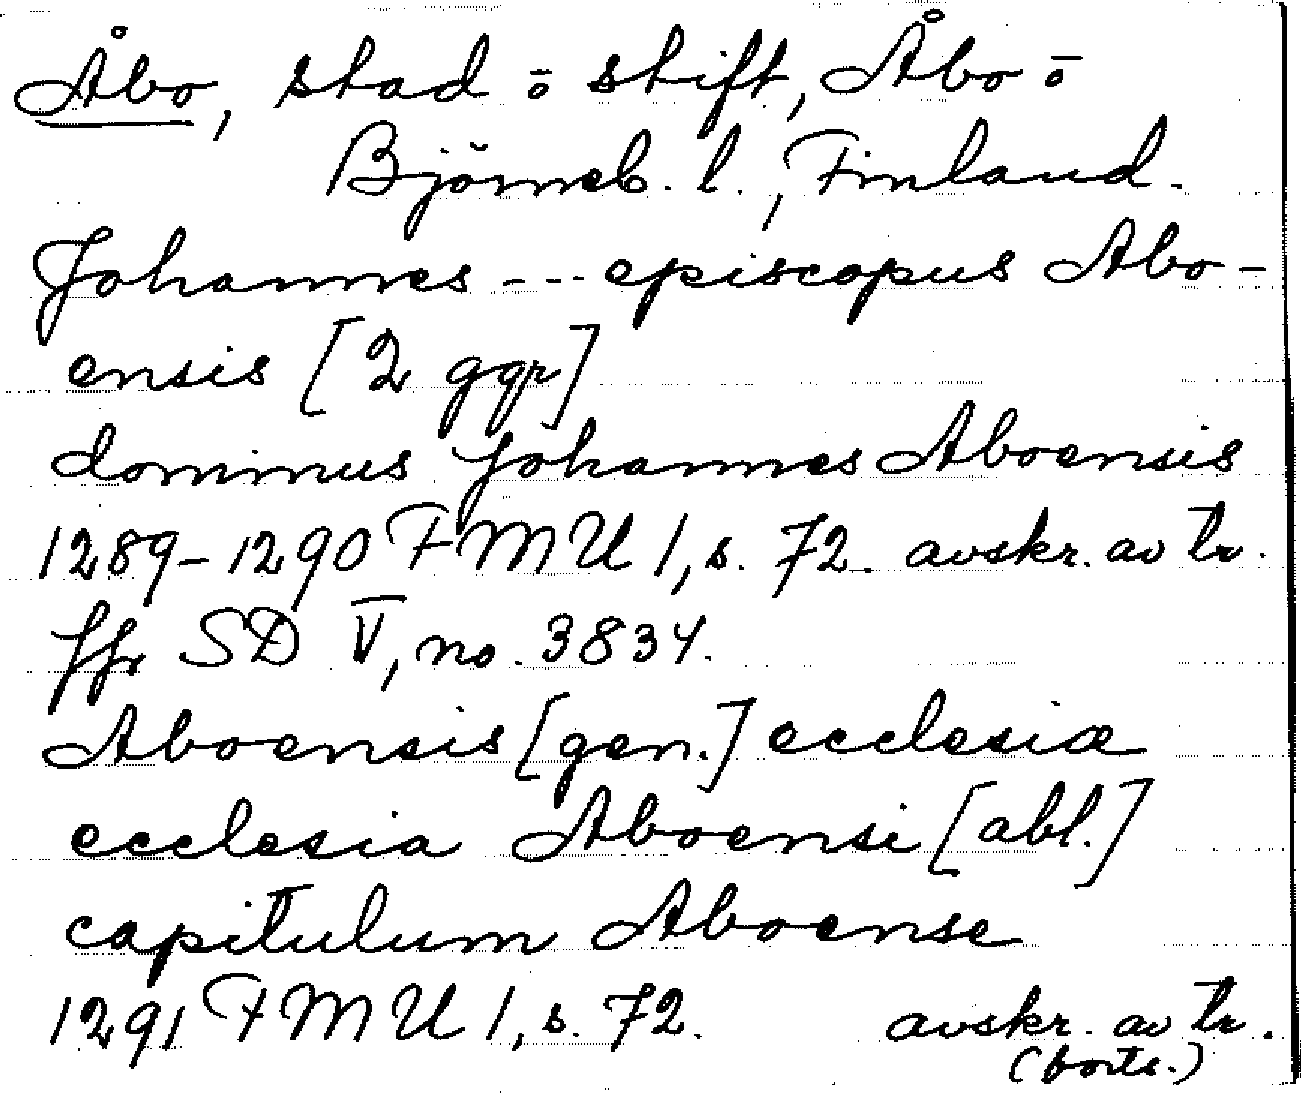 Åbo, stad o stift, Åbo o
Björneb. l., Finland.
Johannes --- episcopus Abo-
ensis [2 ggr]
dominus Johannes Aboensis
1289-1290 FMU 1, s. 72. avskr. av tr.
jfr SD V, no. 3834.
Aboensis [gen.] ecclesiæ
ecclesia Aboensi [abl.]
capitulum Aboense
1291 FMU 1, s. 72. avskr. av tr.
(forts.)